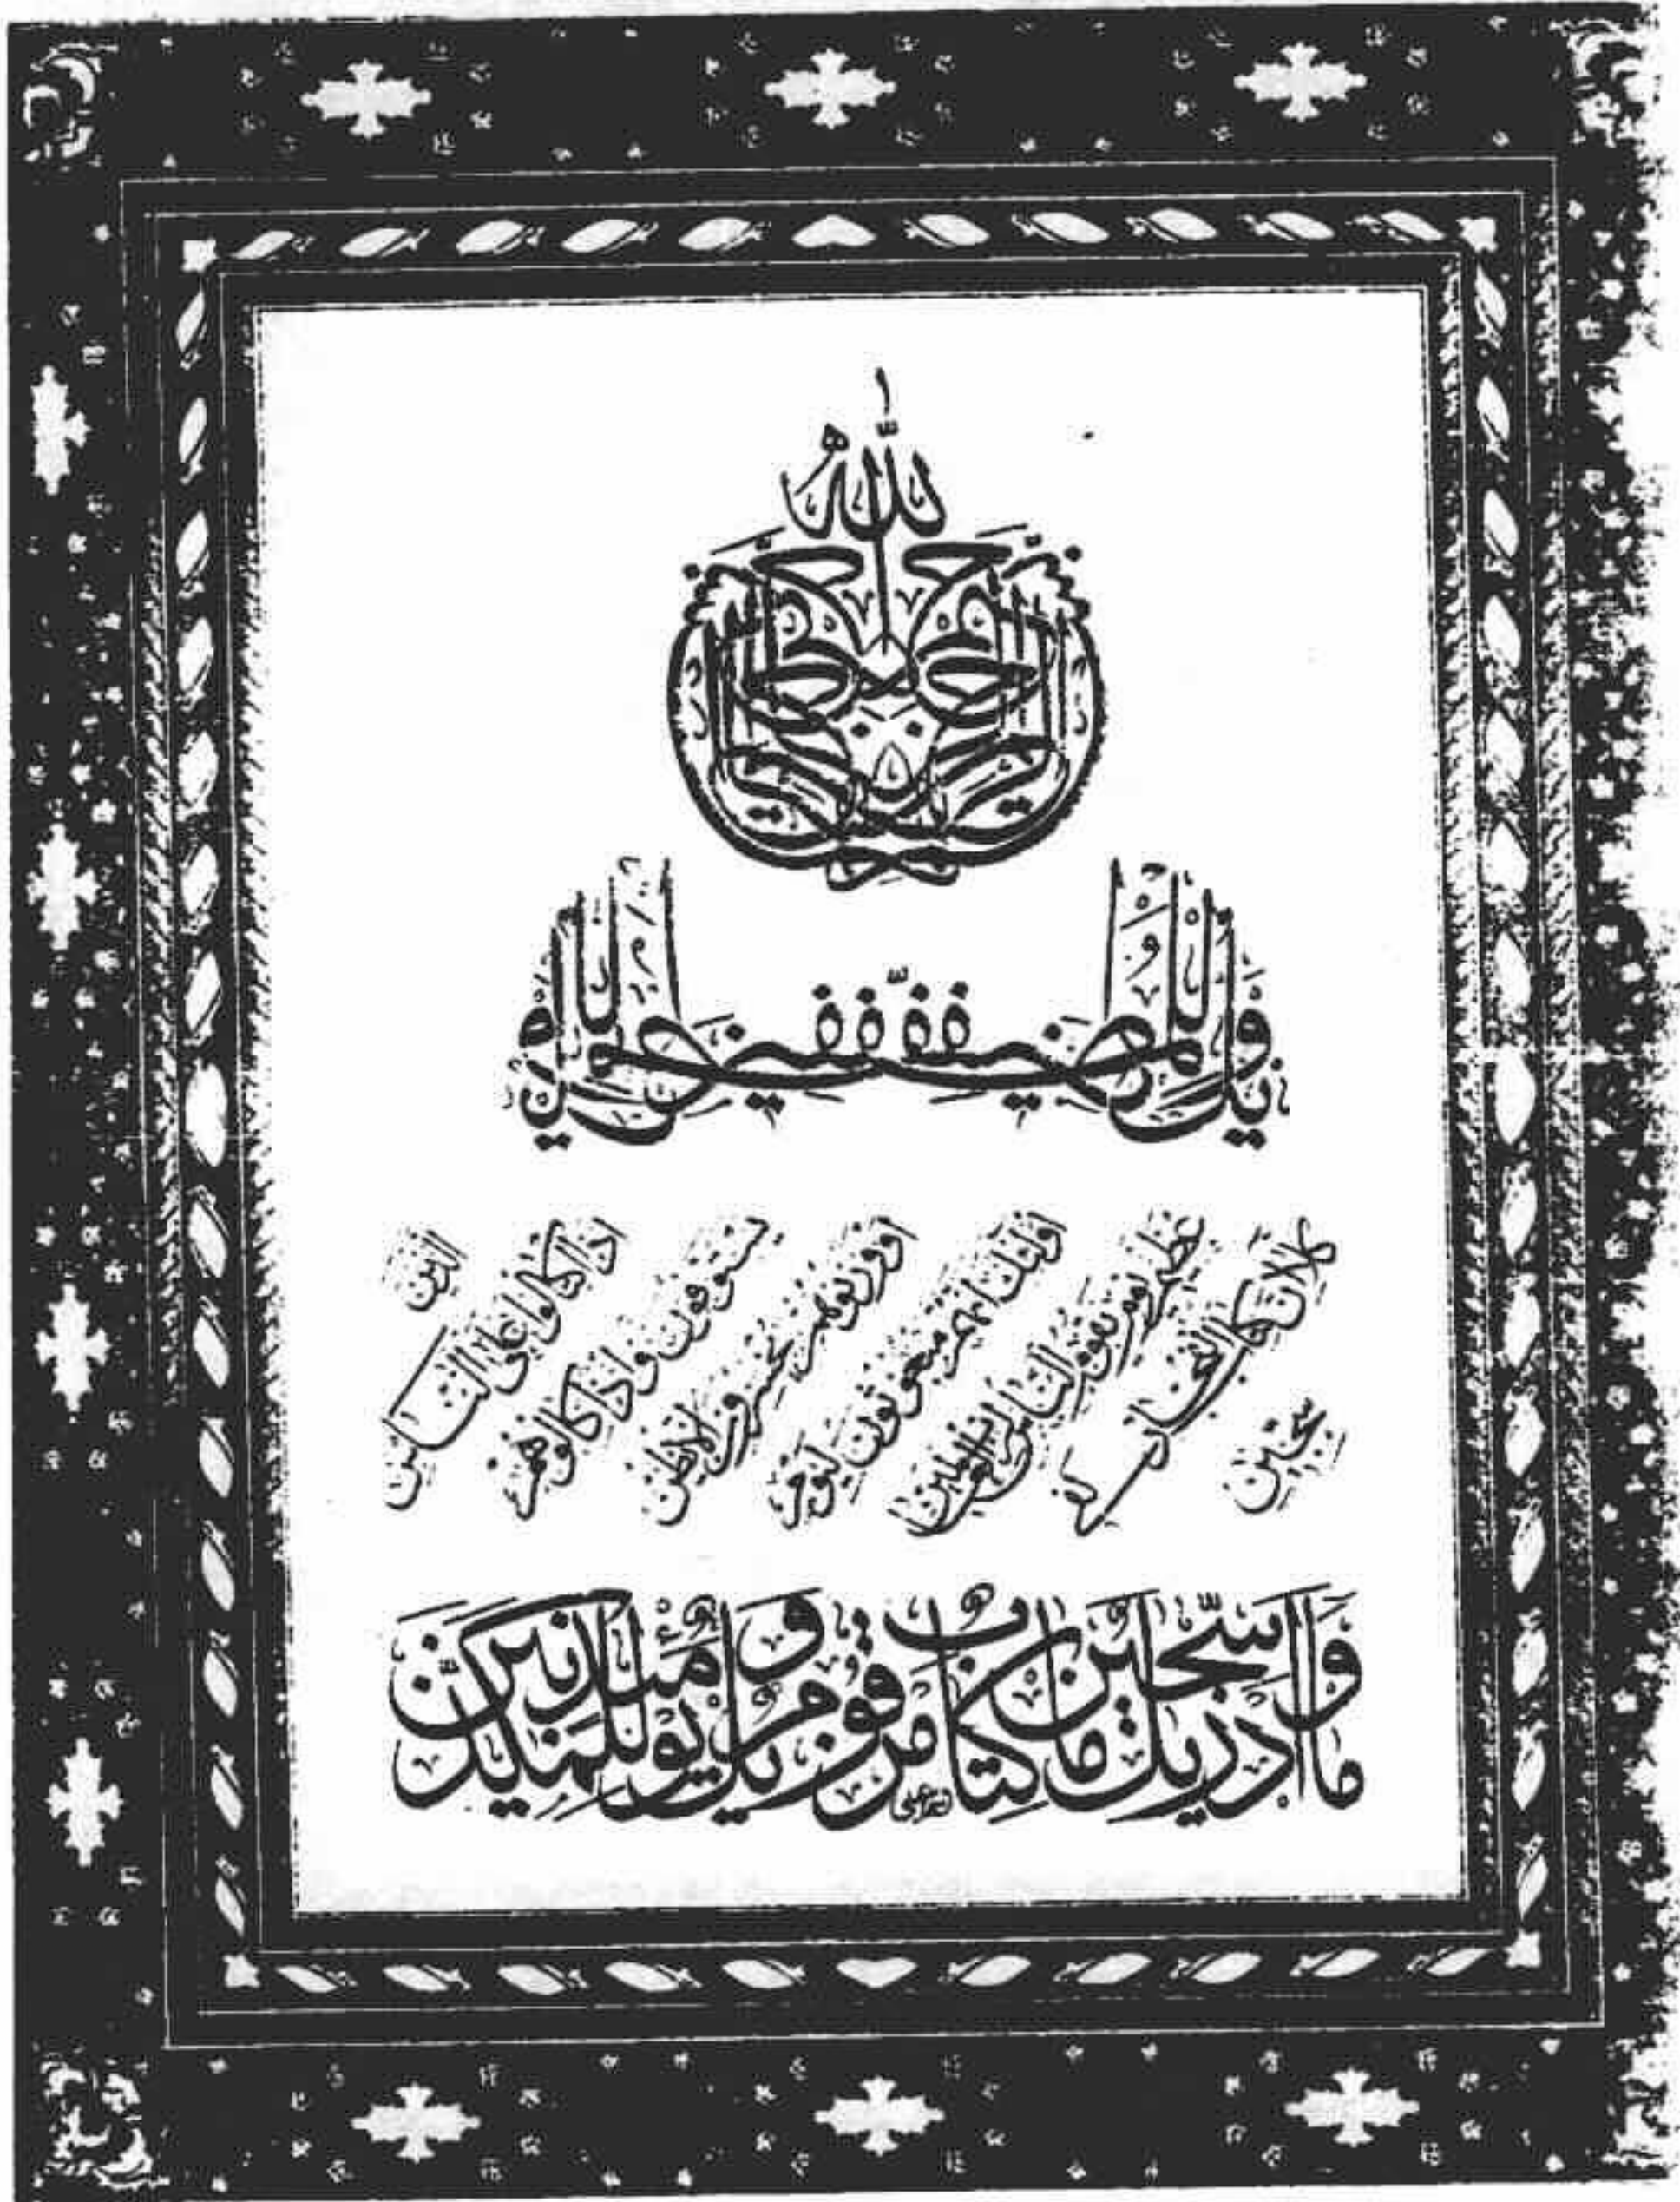 بسم الله الرحمن الرحيم
ويل للمطففين
الذين
اذا اكتالوا على الناس
يستوفون واذا كالوهم
اووزنوهم يخسرون الا يظن
اولئك انهم مبعوثون ليوم
عظيم يوم يقوم الناس لرب العالمين
كلا ان كتاب الفجار لفي
سجين
وَمَا أَدْرِيكَ مَا سِجِّينٌ كِتَابٌ مَرْقُومٌ وَيْلٌ يَوْمَئِذٍ لِلْمُكَذِّبِينَ